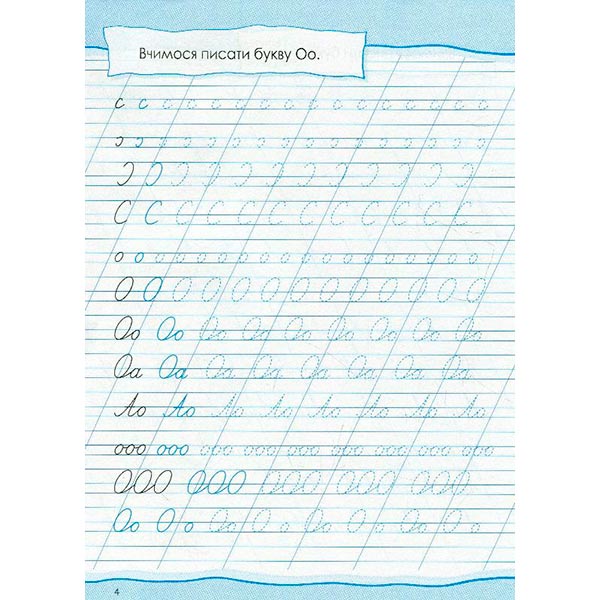 Вчимося писати букву Оо.
с с с с с с с с с с с с с с с с с с
С С С С С С С С С С С С
о о о о о о о о о о о о о о о о о о
О О О О О О О О О О О О О
Оо Оо Оо Оо Оо Оо Оо Оо Оо
Оа Оа Оа Оа Оа Оа Оа Оа
Ао Ао Ао Ао Ао Ао Ао Ао
ооо ооо ооо ооо ооо ооо ооо ооо ооо
ООО ООО ООО ООО ООО
Оо О о Оо О о Оо О о Оо О о
4